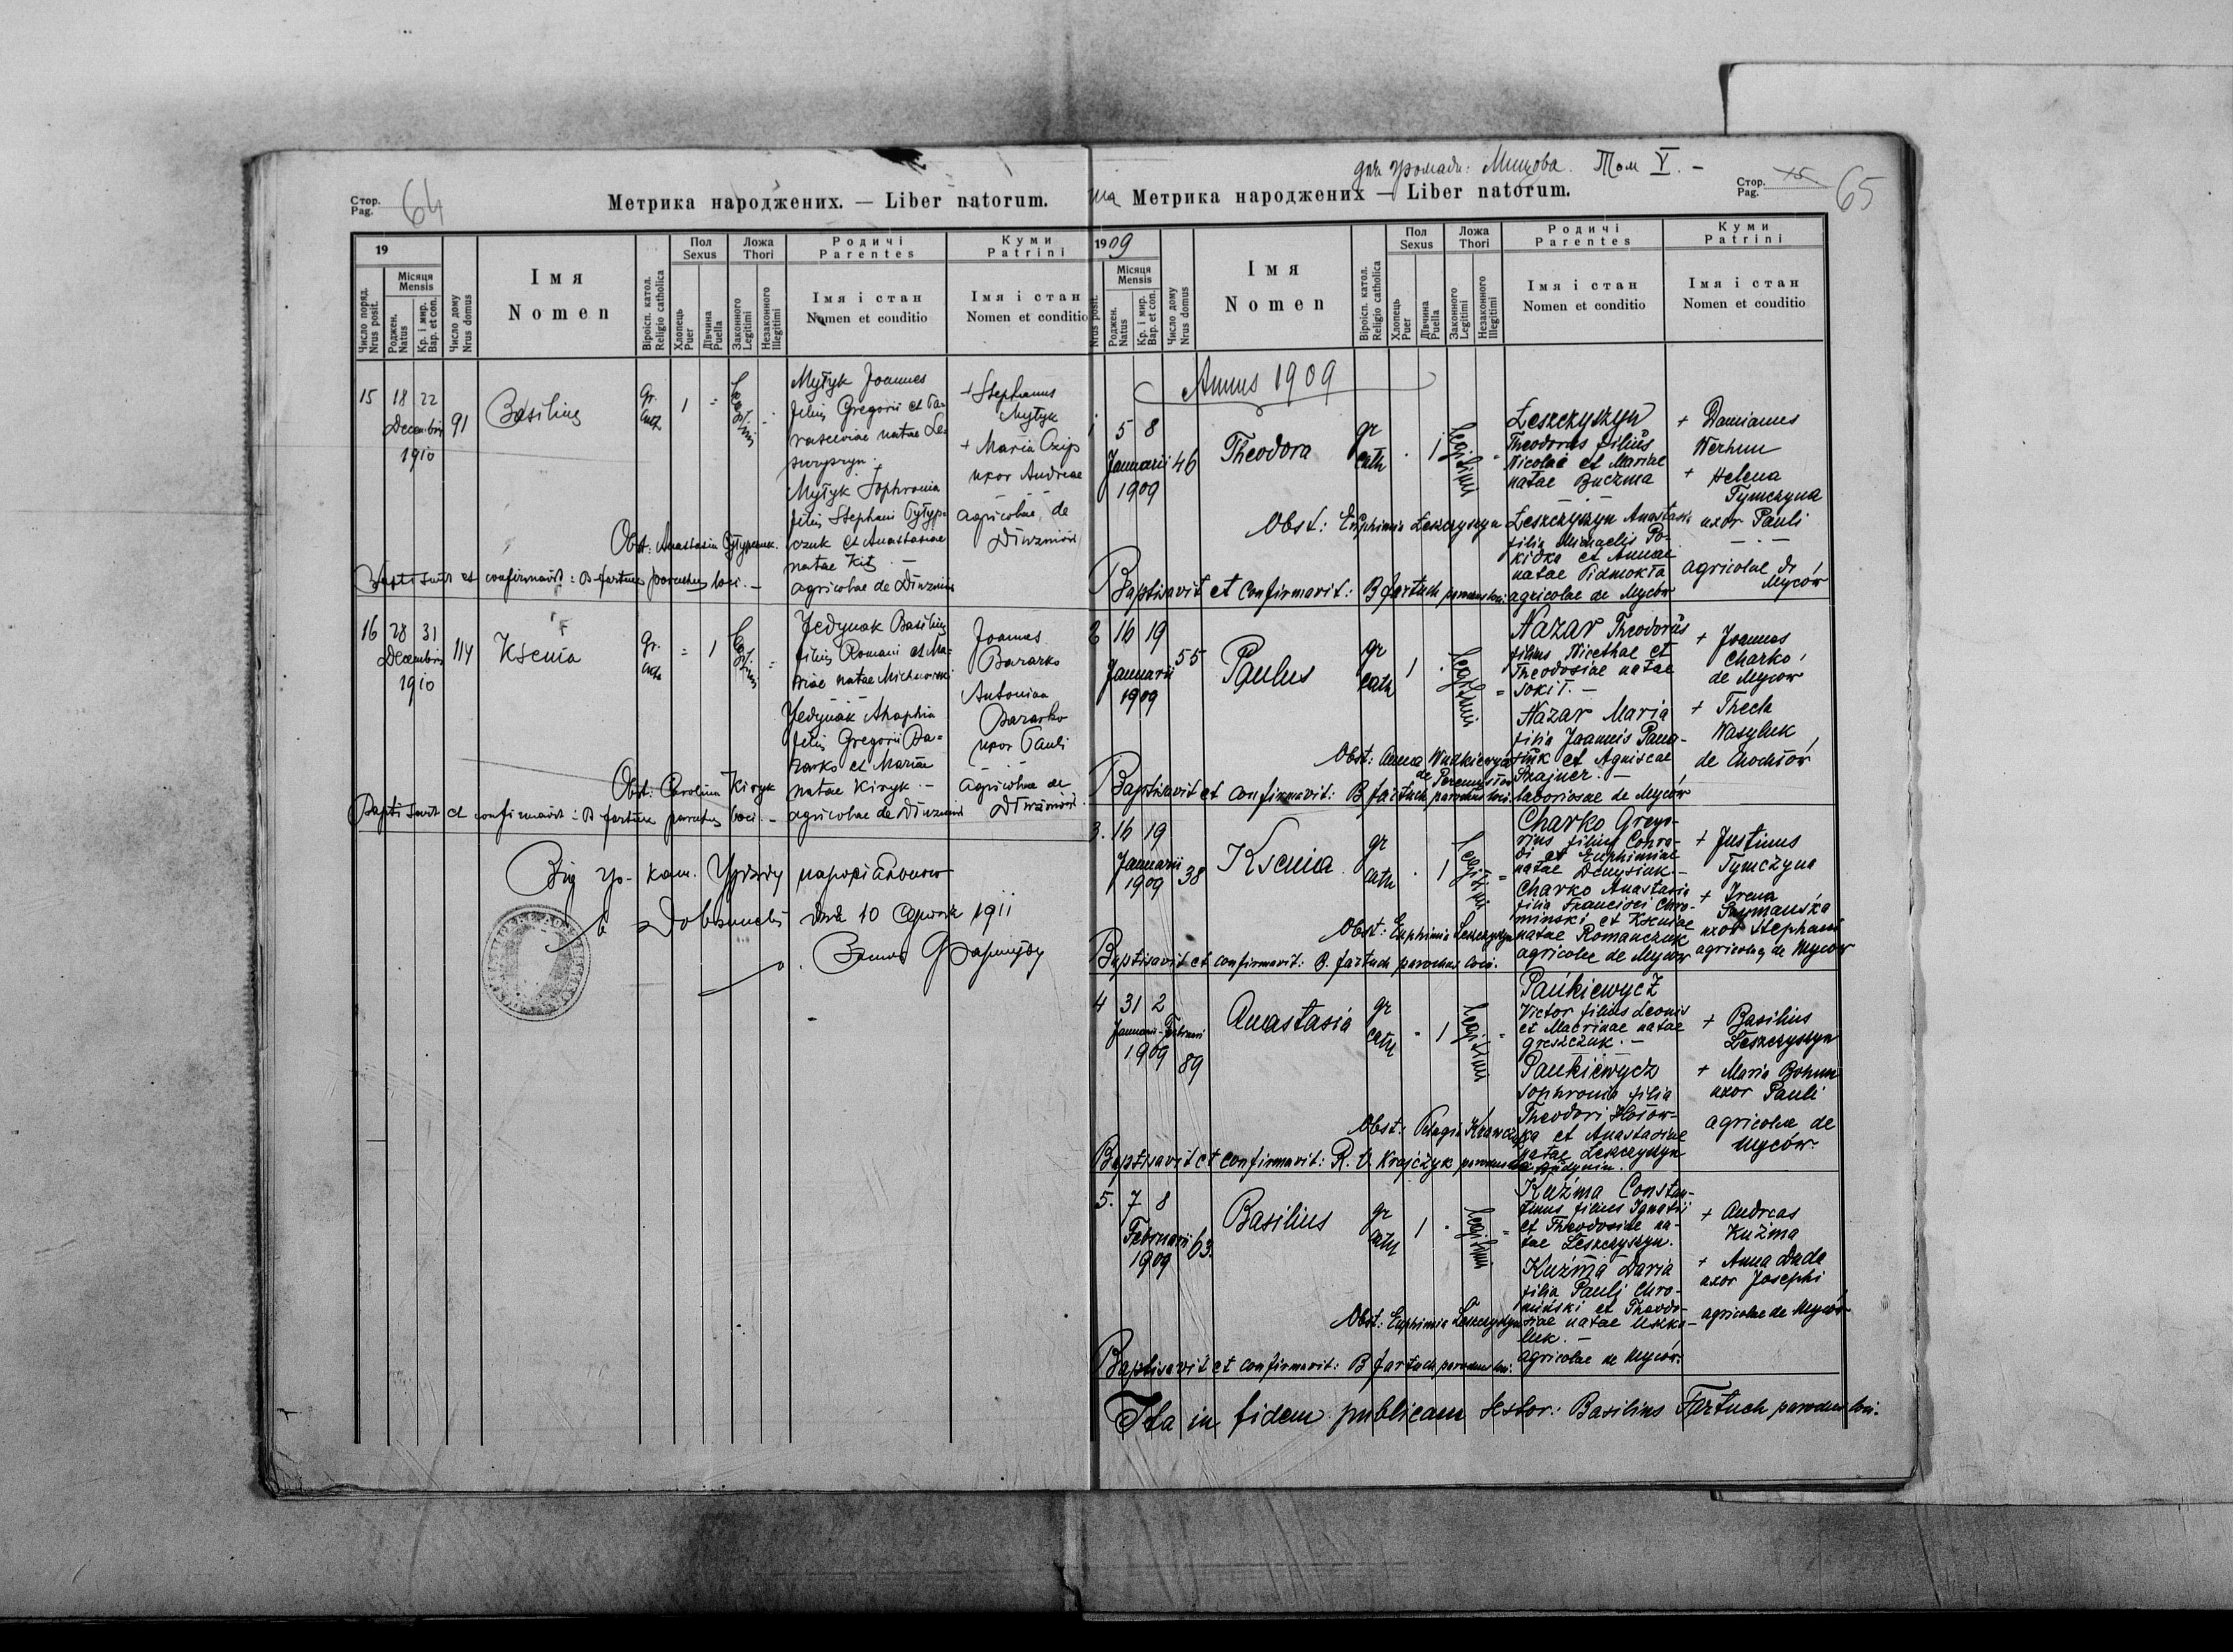 Стор.
Pag. 64
Метрика народжених. — Liber natorum.
19
Число поряд.
Nrus posit.
Місяця
Mensis
Роджен.
Natus
Кр. і мир.
Bap. et con.
Число дому
Nrus domus
Імя
Nomen
Віроісп. катол.
Religio catholica
Пол
Sexus
Хлопець
Puer
Дівчина
Puella
Ложа
Thori
Законного
Legitimi
Незаконного
Illegitimi
Родичі
Parentes
Імя і стан
Nomen et conditio
Куми
Patrini
Імя і стан
Nomen et conditio
15 18 22
Decembris
1910
91
Basilius
Gr.
cath
1
Legitimi
Mytyk Joannes
filius Gregorii et Pa-
rasceviae natae Le-
Mytyk Sophronia
filia Stephani
czuk et Anastasiae
natae Kit. —
agricolae de
+ Stephanus
Mytyk
+ Maria Osip
uxor Andreae
agricolae de
Obst: Anastasia
Baptisavit et confirmavit: B fartuch parochus loci. —
16 28 31
Decembris
1910
114
Ksenia
Gr.
cath
1
Legitimi
Jedynak Basilius
filius Romani et Ma-
riae natae
Jedynak Ahaphia
filia Gregorii Ba-
zarko et Mariae
natae Kiryk. —
agricolae de
Joannes
Bazarko
Antonina
Bazarko
uxor Pauli
agricolae de
Obst: Carolina Kiryk
Baptisavit et confirmavit: B fartuch parochus loci. —
Від гр.- кат. Уряду парохіяльного
в дня 10 1911
Фартух
для громади: Мицова. Том V. —
Метрика народжених — Liber natorum.
Стор.
Pag. 65
1909
Nrus posit.
Місяця
Mensis
Роджен.
Natus
Кр. і мир.
Bap. et con.
Число дому
Nrus domus
Імя
Nomen
Віроісп. катол.
Religio catholica
Пол
Sexus
Хлопець
Puer
Дівчина
Puella
Ложа
Thori
Законного
Legitimi
Незаконного
Illegitimi
Родичі
Parentes
Імя і стан
Nomen et conditio
Куми
Patrini
Імя і стан
Nomen et conditio
Annus 1909
1 5 8
Januarii
1909
46
Theodora
gr
cath
1
legitimi
Leszczyszyn
Theodorus filius
Nicolai et Mariae
natae Buczma
Leszczyszyn Anastasia
filia Michaelis Po-
kidka et Annae
natae Pidmokła
agricolae de Myców
+ Damianus
Werhun
+ Helena
Tymczyna
uxor Pauli
agricolae de
Myców
Obst: Euphimia Leszczyszyn
Baptisavit et confirmavit: B fartuch parochus loci.
2 16 19
Januarii
1909
55
Paulus
gr
cath
1
legitimi
Nazar Theodorus
filius Nicethae et
Theodosiae natae
Sokił. —
Nazar Maria
filia Joannis Pana-
siuk et Agniscae
Szajner. —
laboriosae de Myców
+ Joannes
Charko,
de Myców
+ Thecla
Wasyluk
de Chochłów
Obst: Anna
de
Baptisavit et confirmavit: B fartuch parochus loci.
3. 16 19
Januarii
1909
38
Ksenia
gr
cath
1
legitimi
Charko Grego-
rius filius Conra-
di et Euphimiae
natae Denysiuk. —
Charko Anastasia
filia Francisci Chro-
minski et Kseniae
natae Romanczuk
agricolae de Myców
+ Justinus
Tymczyna
+ Irena
Szymańska
uxor Stephani
agricolae de Myców
Obst: Euphimia Leszczyszyn
Baptisavit et confirmavit: B. fartuch parochus loci.
4 31 2
Januarii - Februarii
1909
89
Anastasia
gr
cath
1
legitimi
Pańkiewycz
Victor filius Leonis
et Macrinae natae
Greszczuk. —
Pańkiewycz
Sophronia filia
Theodori
ka et Anastasiae
natae Leszczyszyn
+ Basilius
Leszczyszyn
+ Maria Bohun
uxor Pauli
agricolae de
Myców.
Obst: Pelagia
Baptisavit et confirmavit: R. V. Krajczyk parochus
5. 7 8
Februarii
1909
63.
Basilius
gr
cath
1
legitimi
Kuźma Constan-
tinus filius Ignatii
et Theodosiae na-
tae Leszczyszyn.
Kuźma Daria
filia Pauli Chro-
miński et Theodo-
siae natae Uszka-
luk. —
agricolae de Myców.
+ Andreas
Kuźma
+ Anna Duda
uxor Josephi
agricolae de Myców
Obst: Euphimia Leszczyszyn
Baptisavit et confirmavit: B fartuch parochus loci.
Ita in fidem publicam testor: Basilius Fartuch parochus loci.